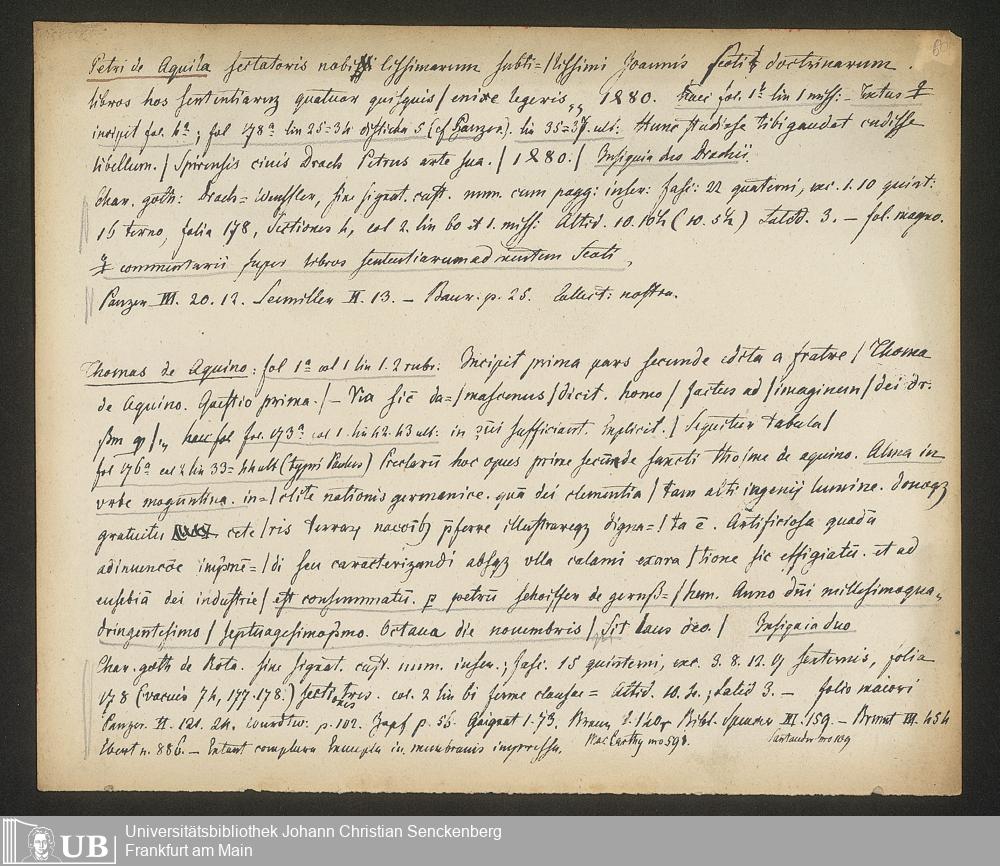 Petri de Aquila sectatoris nobilissimarum subti=/lissimi Joannis Scoti doctrinarum.
libros hos sententiarum quatuor quisquis / enixe legeris,, 1880. haec fol. 1ᵇ lin 1 miss: – Textus
incipit fol. 4ᵃ; fol 178ᵃ lin 25=34 disticha 5 (cf Panzer). lin 35=37 ult: Hunc studiose tibi gaudet cudisse
libellum. / Spirensis civis Drach Petrus arte sua. / 1880. / Insignia duo Drachii.
Char. goth: Drach=Wenssler, sine signat. cust. num. cum pagg: inser: Fasc: 22 quaterni, exc. 1. 10 quint:
16 terno, folia 178, Sectiones 4, col 2. lin 60 et 1. miss: Altid. 10. (10. 5½) Latid. 3. – fol. magno.
commentarii super libros sententiarum ad mentem Scoti,
Panzer III. 20. 12. Seemiller II. 13. – Baur. p. 25. Collect: nostra.
Thomas de Aquino: fol 1ᵃ col 1 lin 1. 2 rubr: Incipit prima pars secunde edita a fratre / Thoma
de Aquino. Questio prima. / – Via sic da=/mascenus / dicit. homo / factus ad / imaginem / dei dr:
haec fol. 173ᵃ col 1. lin 42. 43 ult: in sufficiant. Explicit. / Sequitur tabula /
fol 176ᵃ col 2 lin 33=44 ult (typi Paulus) Preclarū hoc opus prime secūnde sancti tho/me de aquino. Alma in
urbe moguntina. in=/clite nationis germanice. quā dei clementia / tam alti ingenij lumine. donoqz
gratuitu cete/ris terraꝝ nacōibꝫ p̄ferre illustrareqꝫ digna=/ta ē. Artificiosa quadā
adinuencōe imprīe=/di seu caracterizandi absqꝫ ulla calami exara/tione sic effigiatū. et ad
eusebiā dei industrie / est consummatū. p petrū schoiffer de gernß=/hem. Anno dn̄i millesimoqua„
dringentesimo / septuagesimop̄mo. Octaua die nouembris / Sit laus deo. / Insignia duo
Char. goth de Rota. sine signat. cust. num. inser.; Fasc. 15 quinterni, exc. 3. 8. 12. 17 sexternis, folia
178 (vacuis 74, 177. 178.) sectiones tres. col. 2 lin 61 ferme clausae= Altid. 10. 2.; Latid 3. – folio maiori
Panzer. II. 121. 24. Wurdtw: p. 102. Zapf p. 55. Gaignat 1. 73. Braun Bibl. Spencer III. 159. – Brunet III. 454
Ebert n. 886. – Extant complura Exempla in membranis impressa. MacCarthy nro 591. Santander nro 109
60
UB
Universitätsbibliothek Johann Christian Senckenberg
Frankfurt am Main